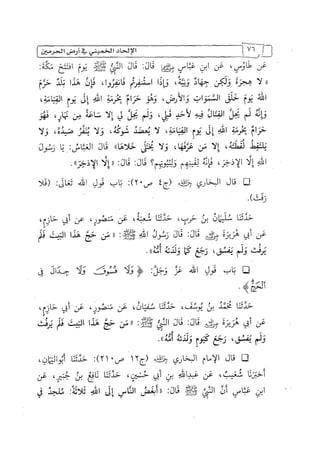 ٧٦ الإلحاد الخميني في أرض الحرمين
عَن طَاوُسٍ، عَن ابنِ عَبَّاسٍ قَالَ: قَالَ النَّبِيُّ يَومَ افتَتَحَ مَكَّةَ:
«لا هِجرَةَ وَلَكِن جِهَادٌ وَنِيَّةٌ، وَإِذَا استُنفِرتُم فَانفِرُوا، فَإِنَّ هَذَا بَلَدٌ حَرَّمَ
اللهُ يَومَ خَلَقَ السَّمَوَاتِ وَالأَرضَ، وَهُوَ حَرَامٌ بِحُرمَةِ اللهِ إِلَى يَومِ القِيَامَةِ،
وَإِنَّهُ لَم يَحِلَّ القِتَالُ فِيهِ لأَحَدٍ قَبلِي، وَلَم يَحِلَّ لِي إِلا سَاعَةً مِن نَهَارٍ، فَهُوَ
حَرَامٌ بِحُرمَةِ اللهِ إِلَى يَومِ القِيَامَةِ، لا يُعضَدُ شَوكُهُ، وَلا يُنَفَّرُ صَيدُهُ، وَلا
يَلتَقِطُ لُقَطَتَهُ، إِلا مَن عَرَّفَهَا، وَلا يُختَلَى خَلاهَا» قَالَ العَبَّاسُ: يَا رَسُولَ
اللهِ إِلا الإِذخِرَ، فَإِنَّهُ لِقَينِهِم وَلِبُيُوتِهِم؟ قَالَ: قَالَ: «إِلا الإِذخِرَ».
قال البخاري (ج٤ ص٢٠): بَاب قَولِ اللهِ تَعَالَى: (فَلا
رَفَثَ).
حَدَّثَنَا سُلَيمَانُ بنُ حَربٍ، حَدَّثَنَا شُعبَةُ، عَن مَنصُورٍ، عَن أَبِي حَازِمٍ،
عَن أَبِي هُرَيرَةَ قَالَ: قَالَ رَسُولُ اللهِ : «مَن حَجَّ هَذَا البَيتَ فَلَم
يَرفُث وَلَم يَفسُق، رَجَعَ كَمَا وَلَدَتهُ أُمُّهُ».
بَاب قَولِ اللهِ عَزَّ وَجَلَّ: ﴿وَلَا فُسُوقَ وَلَا جِدَالَ فِي
الْحَجِّ﴾.
حَدَّثَنَا مُحَمَّدُ بنُ يُوسُفَ، حَدَّثَنَا سُفيَانُ، عَن مَنصُورٍ، عَن أَبِي حَازِمٍ،
عَن أَبِي هُرَيرَةَ قَالَ: قَالَ النَّبِيُّ : «مَن حَجَّ هَذَا البَيتَ فَلَم يَرفُث
وَلَم يَفسُق، رَجَعَ كَيَومِ وَلَدَتهُ أُمُّهُ».
قال الإمام البخاري (ج١٢ ص٢١٠): حَدَّثَنَا أَبُواليَمَانِ،
أَخبَرَنَا شُعَيبٌ، عَن عَبدِاللهِ بنِ أَبِي حُسَينٍ، حَدَّثَنَا نَافِعُ بنُ جُبَيرٍ، عَن
ابنِ عَبَّاسٍ أَنَّ النَّبِيَّ قَالَ: «أَبغَضُ النَّاسِ إِلَى اللهِ ثَلاثَةٌ: مُلحِدٌ فِي